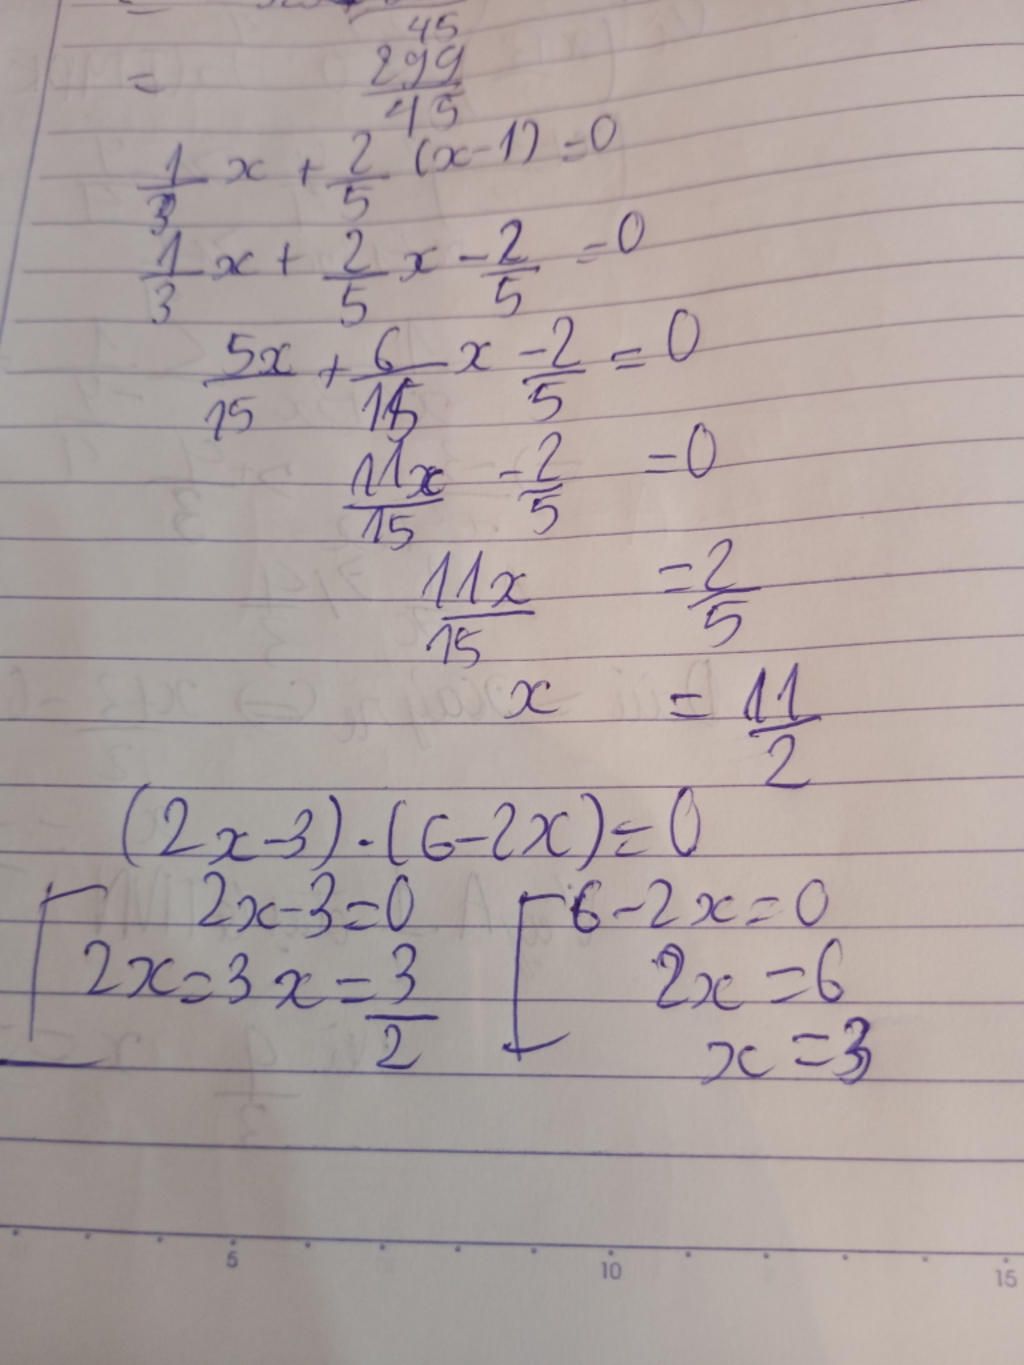 45
= 299/45
1/3 x + 2/5 (x-1) = 0
1/3 x + 2/5 x - 2/5 = 0
5x/15 + 6/15 x - 2/5 = 0
11x/15 - 2/5 = 0
11x/15 = 2/5
x = 11/2
(2x-3).(6-2x)=0
[ 2x-3=0 [ 6-2x=0
2x=3 x=3/2 2x=6
x=3
5 10 15